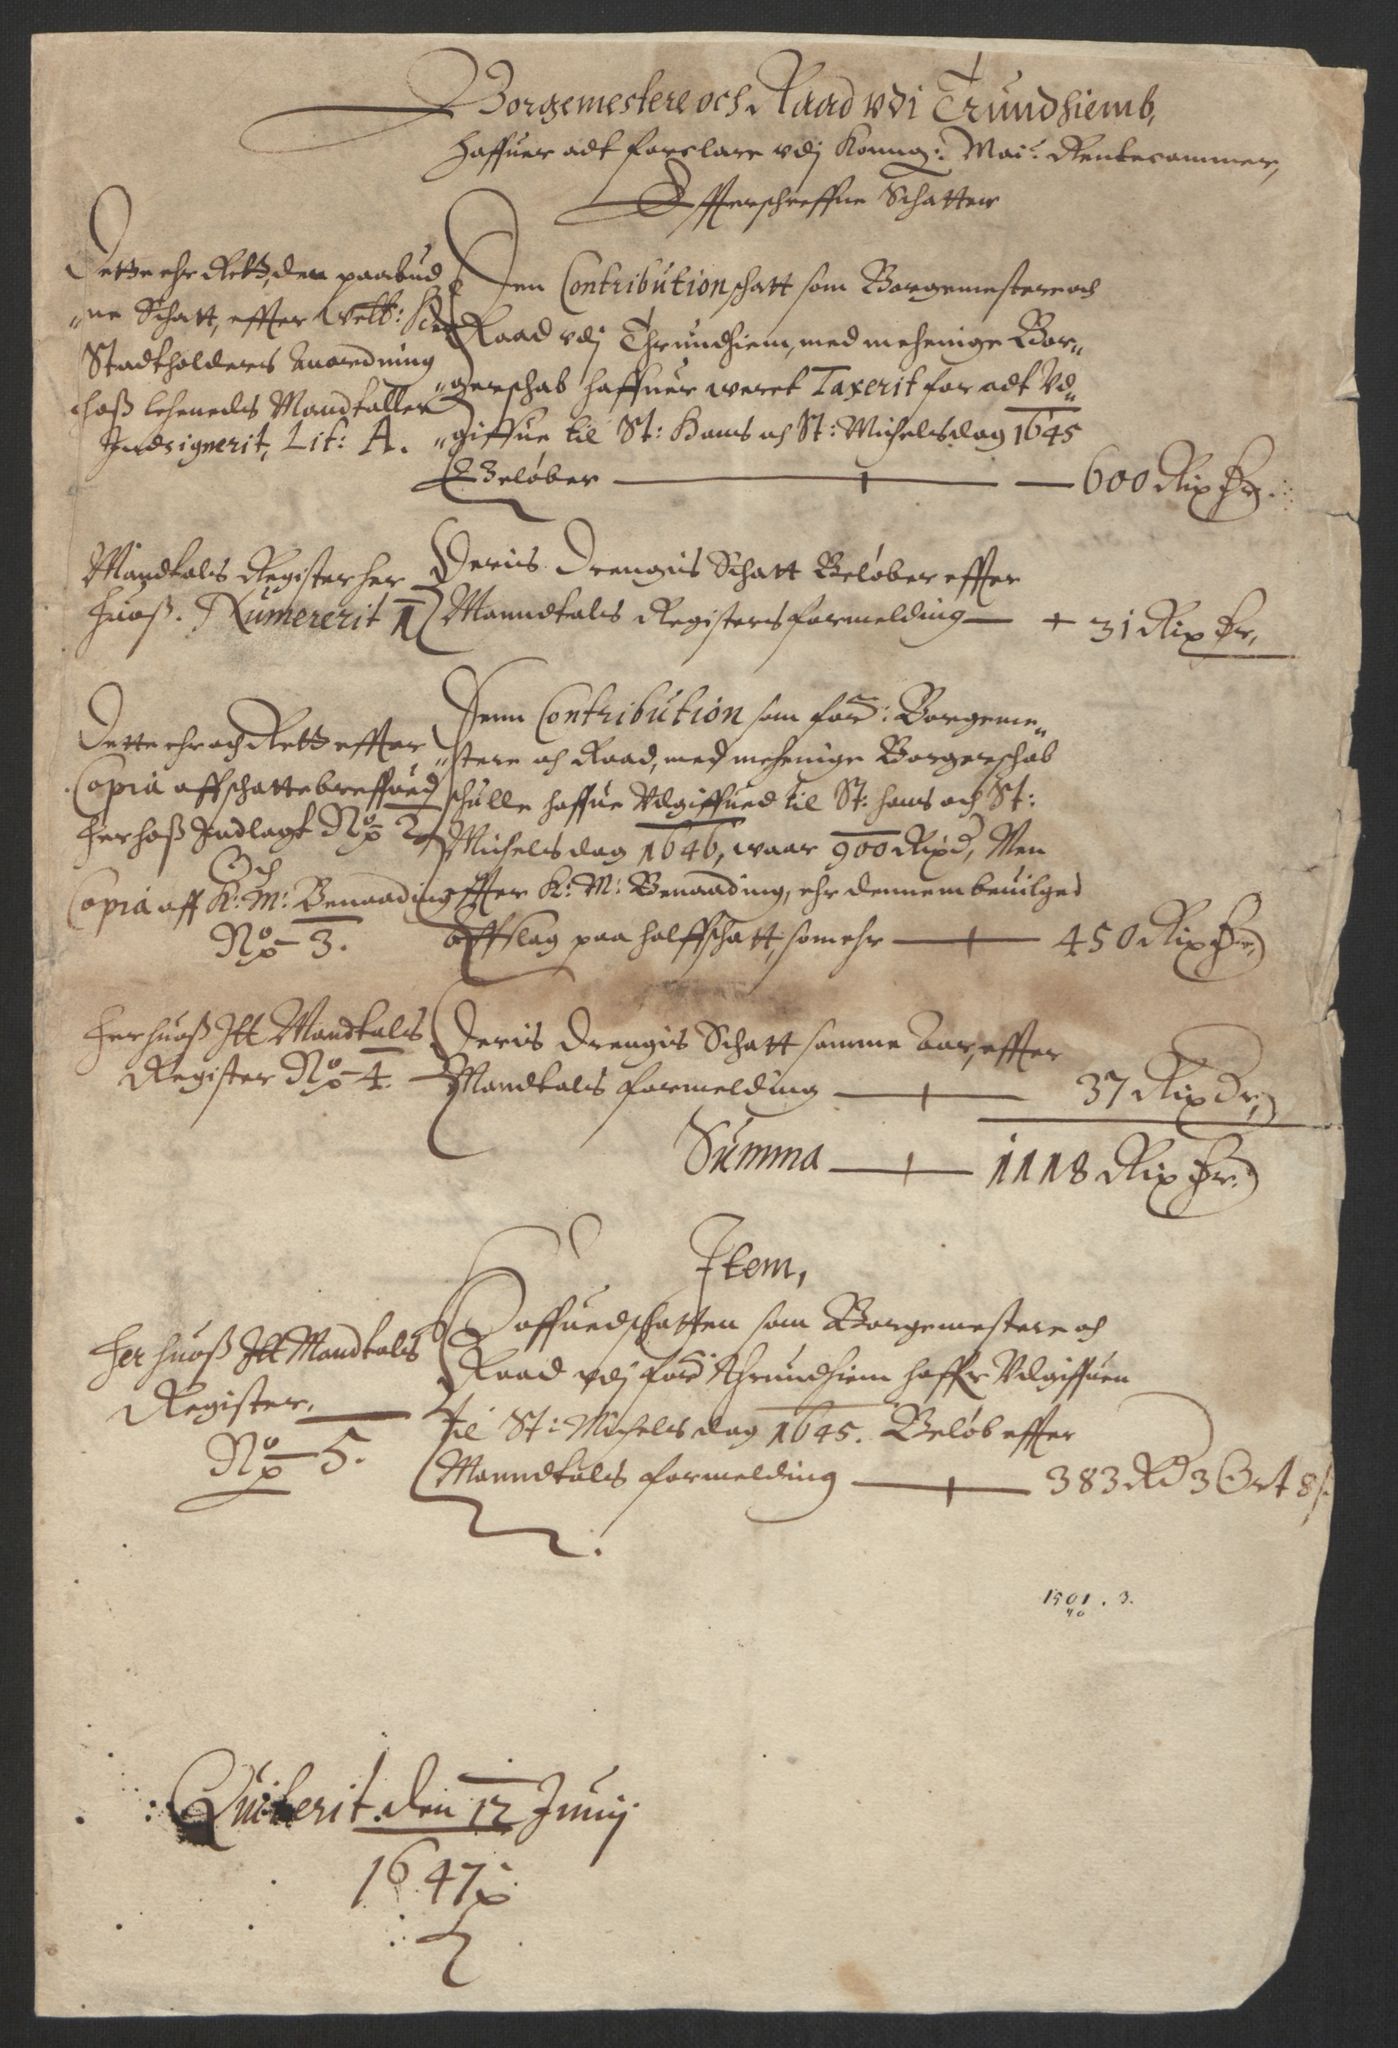 Borgemestere och Raad vdi Trundhiemb,
haffuer adt forclare vdj Konng: Mai: Rentecammer,
Effterschreffne Schatter
Dette ehr Rett, den paabud
"ne Schatt, effter Welb: Her
Stadtholders Anordning
hoß lehnedts Mandtaller
Indsignerit, Lit: A.
Den Contribution schatt som Borgemestere och
Raad vdj Thrundhiem, med mehenige Bor"
"gerschab haffuer weret Taxerit for adt Vd"
"giffue til St: Hans och St: Michelsdag 1645
Beløber — 600 Rix dr.
Mandtals Register her
huoß. Numererit 1
Deris Drengis Schatt Beløber effter
Manndtals Registers formelding — 31 Rix dr,
Dette ehr och Rett effter,
Copia aff schattebreffued
herhoß Indlagt No 2
Och
Copia aff K: M: Benaading
No 3.
Denn Contribution som ford: Borgeme"
"stere och Raad, med mehenige Borgerschab
schulle haffue Vdgiffued til St: Hans och St:
Michelsdag 1646, waar 900 Rixd, Men
effter K: M: Benaading, ehr dennem beuilged
affslag paa halffschatt, som ehr — 450 Rix dr,
herhuoß Itt Mandtals
Register No 4.
Deris Drengis Schatt samme Aar, effter
Mandtals formelding — 37 Rix dr,
Summa — 1118 Rix dr.
Item,
her huoß Itt Mandtals
Register,
No 5.
Hoffuedschatten som Borgemestere och
Raad vdj ford Thrundhiem haffr Vdgiffuen
til St: Michelsdag 1645. Beløb effter
Manndtals formelding — 383 Rd 3 Ort 8 s.
1501 . 3.
40
Quiterit den 12 Junij
1647